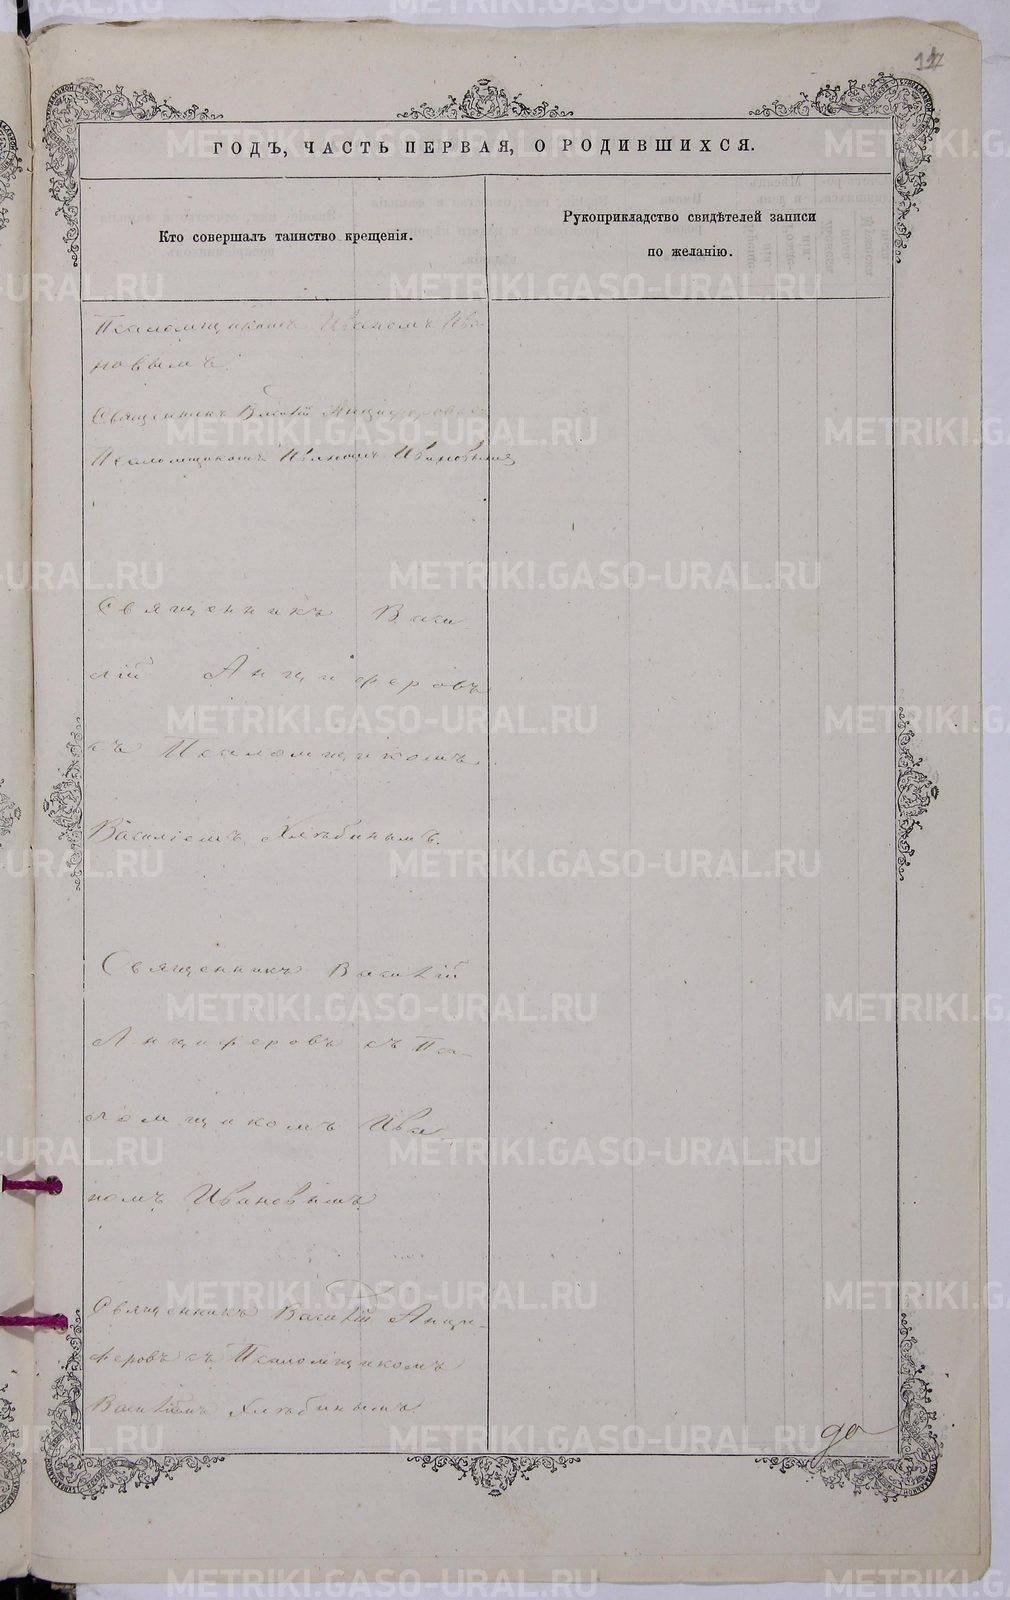 117
ГОДЪ, ЧАСТЬ ПЕРВАЯ, О РОДИВШИХСЯ.
Кто совершалъ таинство крещенія.
Рукоприкладство свидѣтелей записи
по желанію.
Псаломщикомъ Иваномъ Ива-
новымъ.
Священникъ Василій Анциферовъ съ
Псаломщикомъ Иваномъ Ивановымъ
Священникъ Васи-
лій Анциферовъ
съ Псаломщикомъ
Василіемъ Хлѣбинымъ.
Священникъ Василій
Анциферовъ съ Пса-
ломщикомъ Ива-
номъ Ивановымъ
Священникъ Василій Анци-
феровъ съ Псаломщикомъ
Василіемъ Хлѣбинымъ
до
METRIKI.GASO-URAL.RU